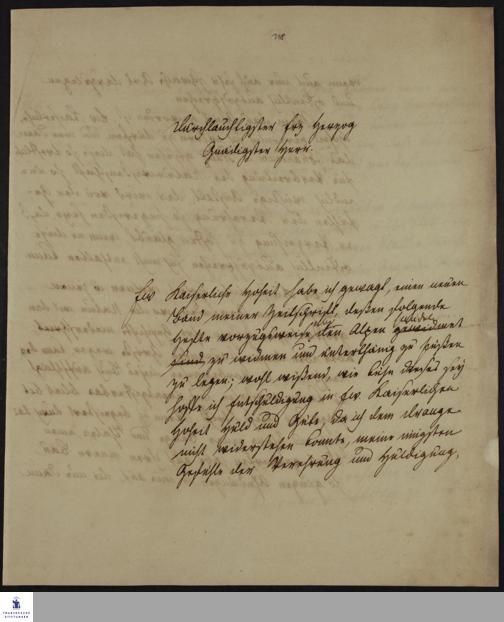 Durchlauchtigster Erz Herzog
Gnädigster Herr.
Ew Kaiserliche Hoheit habe ich gewagt, einen neuen
Band meiner Zeitschrift, deßen folgende
Hefte vorzugsweise den Alpen gewidmet
sind zu widmen und unterthänig zu Füßen
zu legen; wohl wißend, wie kühn dieses sey
hoffe ich Entschuldigung in Ew. Kaiserlichen
Hoheit Huld und Güte, da ich dem Drange
nicht widerstehen konnte, meine innigsten
Gefühle der Verehrung und Huldigung,
FRANCKESCHE
STIFTUNGEN